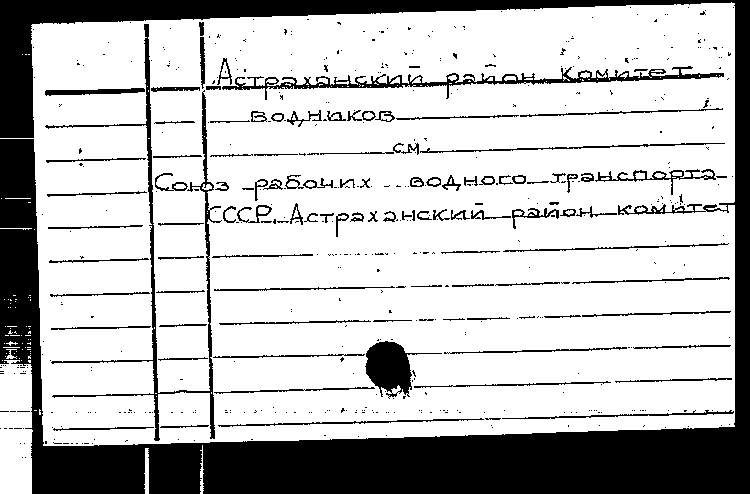 Астраханский район комитет
водников
см.
Союз рабочих водного транспорта
СССР. Астраханский район комитет